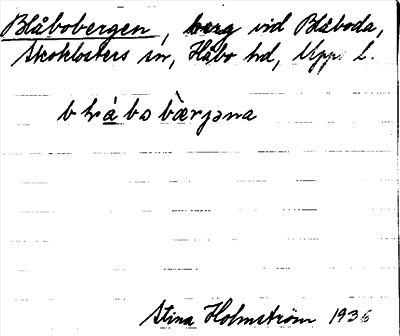 Blåbobergen, berg vid Blåboda,
Skoklosters sn, Håbo hd, Upps. l.
Stina Holmström 1936